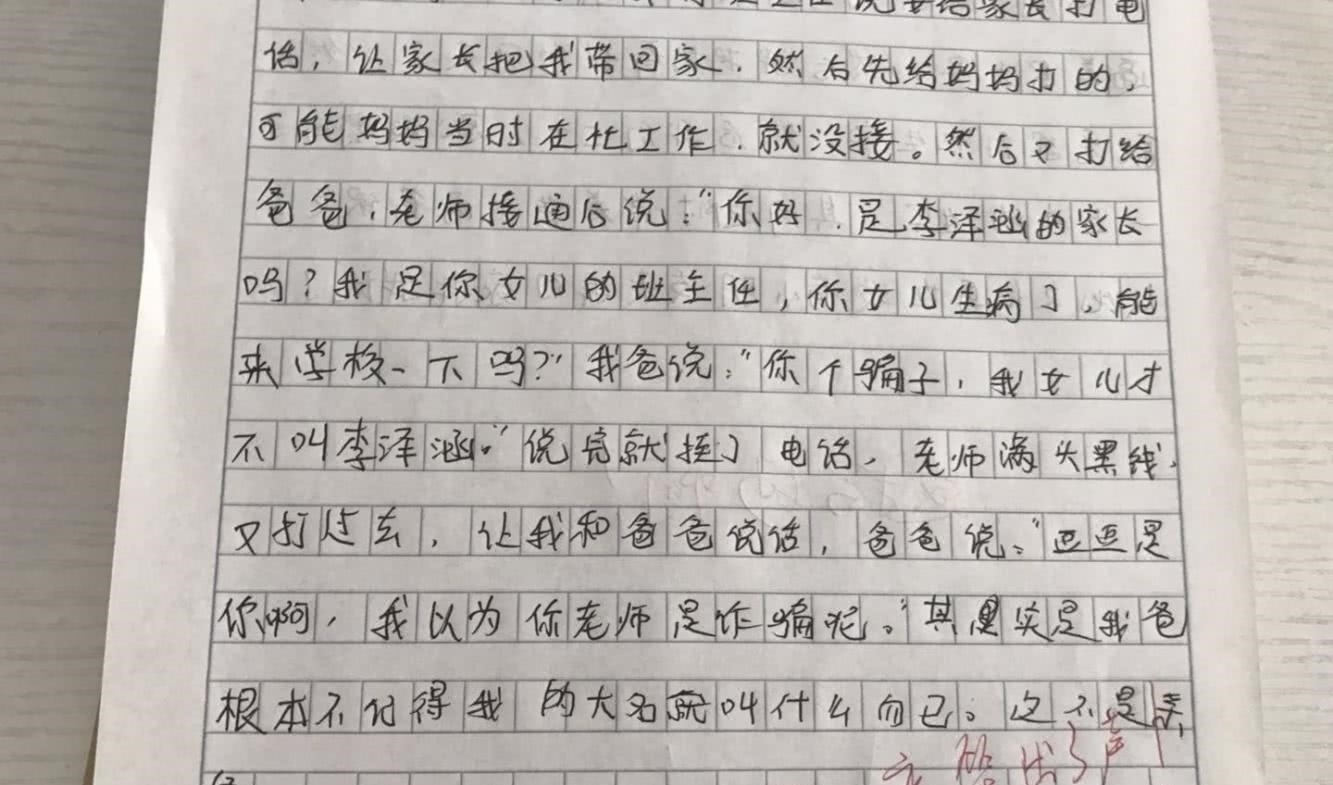 说要给家长打电
话，让家长把我带回家，然后先给妈妈打的，
可能妈妈当时在忙工作，就没接。然后又打给
爸爸，老师接通后说：“你好，是李泽涵的家长
吗？我是你女儿的班主任，你女儿生病了，能
来学校一下吗？”我爸说：“你个骗子，我女儿才
不叫李泽涵。”说完就挂了电话，老师满头黑线，
又打过去，让我和爸爸说话，爸爸说：“豆豆是
你啊，我以为你老师是诈骗呢。”其实是我爸
根本不记得我的大名叫什么而已。这不是亲